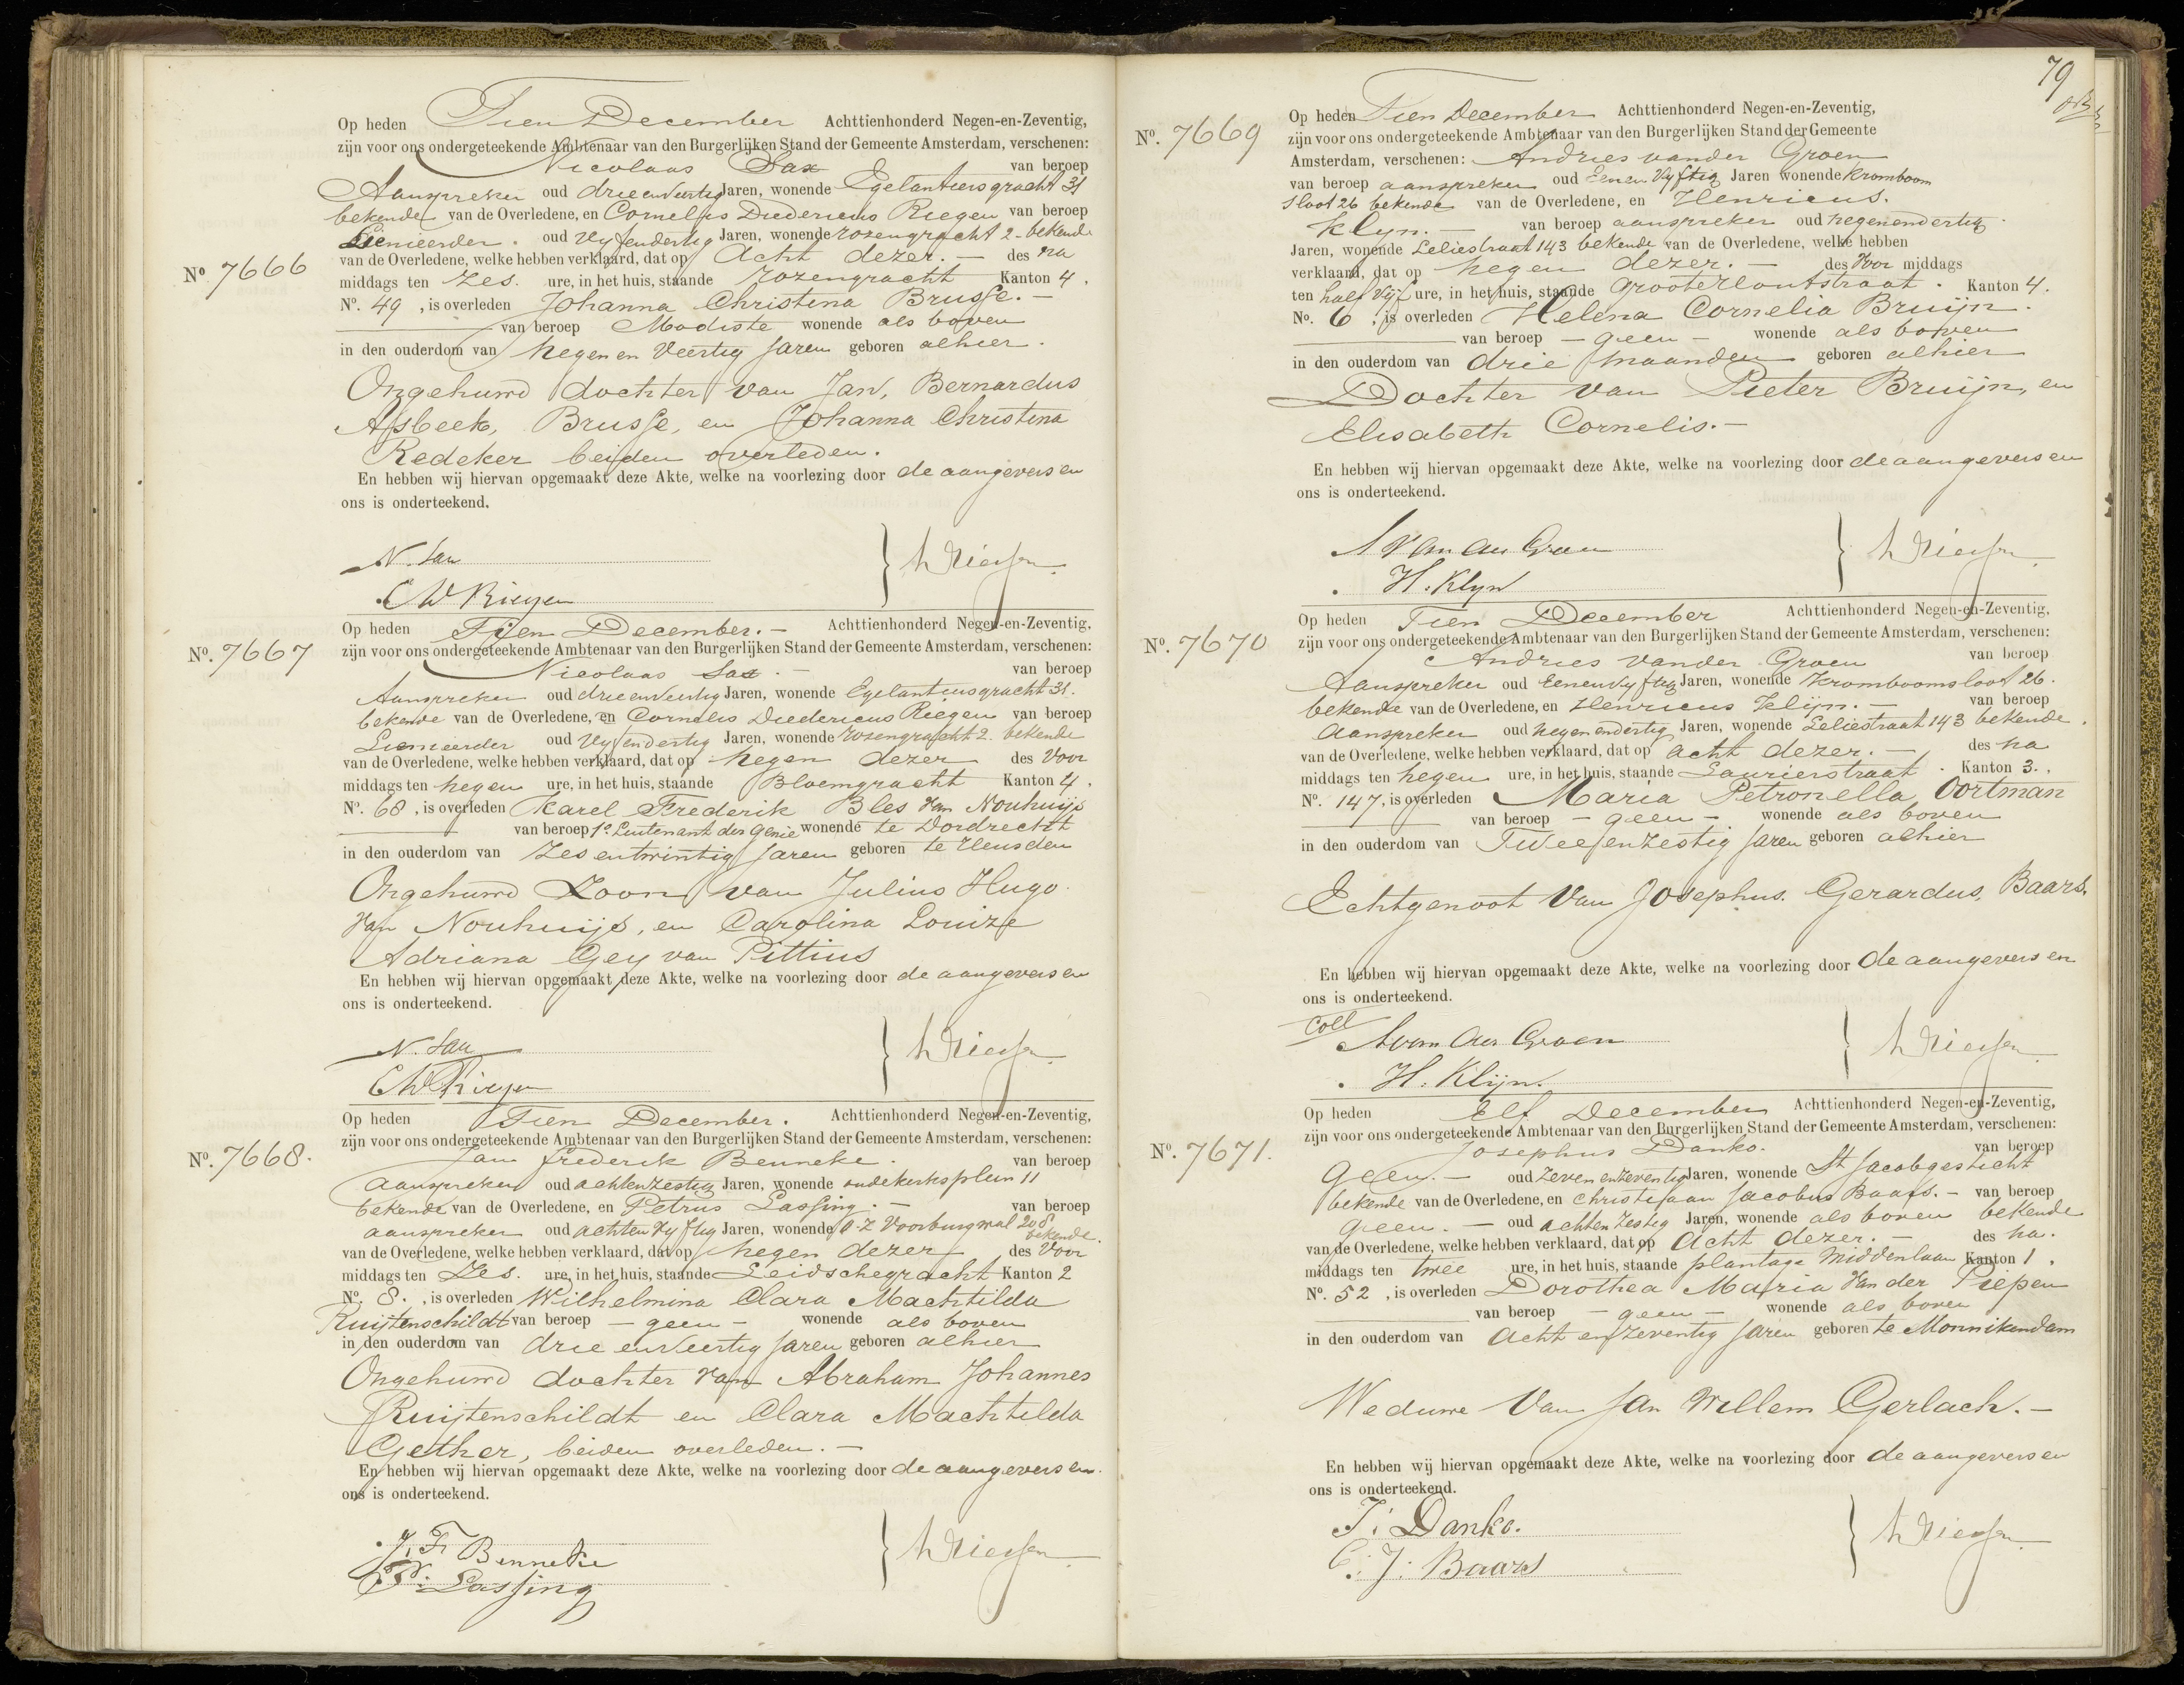 Op heden Tien December Achttienhonderd Negen-en-Zeventig,
zijn voor ons ondergeteekende Ambtenaar van den Burgerlijken Stand der Gemeente Amsterdam, verschenen:
Nicolaas Sax van beroep
Aanspreker oud drie en Veertig Jaren, wonende Egelantiersgracht 31
bekende van de Overledene, en Cornelis Diedericus Riegen van beroep
oud Vyf en dertig Jaren, wonende rozengracht 2 - bekende
van de Overledene, welke hebben verklaard, dat op Acht dezer. — des na
No. 7666
middags ten Zes. ure, in het huis, staande rozengracht Kanton 4.
No. 49, is overleden Johanna Christina Brusse. —
van beroep Modiste wonende als boven
in den ouderdom van Negen en Veertig Jaren geboren alhier.
Ongehuwd dochter van Jan, Bernardus
Asbeek, Brusse, en Johanna Christina
Redeker beiden overleden.
En hebben wij hiervan opgemaakt deze Akte, welke na voorlezing door de aangevers en
ons is onderteekend.
N. Sax
Riegen
Op heden Tien December. — Achttienhonderd Negen-en-Zeventig,
No. 7667
zijn voor ons ondergeteekende Ambtenaar van den Burgerlijken Stand der Gemeente Amsterdam, verschenen:
Nicolaas Sax. — van beroep
Aanspreker oud drie en Veertig Jaren, wonende Egelantiersgracht 31.
bekende van de Overledene, en Cornelis Diedericus Riegen van beroep
oud Vyf en dertig Jaren, wonende rozengracht 2. bekende
van de Overledene, welke hebben verklaard, dat op Negen dezer des Voor
middags ten negen ure, in het huis, staande Bloemgracht Kanton 4.
No. 68, is overleden Karel Frederik Bles Van Nouhuijs
van beroep 1e Luitenant der Genie wonende te Dordrecht
in den ouderdom van Zes en twintig Jaren geboren te Heusden
Ongehuwd Zoon van Julius Hugo
Van Nouhuijs, en Carolina Louize
Adriana Gey van Pittius
En hebben wij hiervan opgemaakt deze Akte, welke na voorlezing door de aangevers en
ons is onderteekend.
N. Sax
Riegen
Op heden Tien December. Achttienhonderd Negen-en-Zeventig,
zijn voor ons ondergeteekende Ambtenaar van den Burgerlijken Stand der Gemeente Amsterdam, verschenen:
No. 7668.
Jan frederik Benneke. van beroep
aanspreker oud achten Zestig Jaren, wonende oudekerksplein 11
bekende van de Overledene, en Petrus Lassing. — van beroep
aanspreker oud achten Vyftig Jaren, wonende O.Z. Voorburgwal 208 bekende.
van de Overledene, welke hebben verklaard, dat op Negen dezer des Voor
middags ten Zes. ure, in het huis, staande Leidschegracht Kanton 2
No. 8., is overleden Wilhelmina Clara Machtilda
Ruijtenschildt van beroep — geen — wonende als boven
in den ouderdom van drie en Veertig Jaren geboren alhier
Ongehuwd dochter Van Abraham Johannes
Ruijtenschildt en Clara Machtilda
Gether, beiden overleden. —
En hebben wij hiervan opgemaakt deze Akte, welke na voorlezing door de aangevers en
ons is onderteekend.
J. F. Benneke
P. Lassing
79
Op heden Tien December Achttienhonderd Negen-en-Zeventig,
No. 7669
zijn voor ons ondergeteekende Ambtenaar van den Burgerlijken Stand der Gemeente
Amsterdam, verschenen: Andries vander Groen
van beroep aanspreker oud Eenen Vyftig Jaren wonende Kromboom
sloot 26 bekende van de Overledene, en Henricus.
Klyn. — van beroep aanspreker oud negenendertig
Jaren, wonende Leliestraat 143 bekende van de Overledene, welke hebben
verklaard, dat op Negen dezer. — des Voor middags
ten half Vijf ure, in het huis, staande Grootezoutstraat. Kanton 4.
No. 6, is overleden Helena Cornelia Bruijn.
van beroep — geen — wonende als boven
in den ouderdom van drie maanden geboren alhier
Dochter van Pieter Bruijn, en
Elisabeth Cornelis. —
En hebben wij hiervan opgemaakt deze Akte, welke na voorlezing door de aangevers en
ons is onderteekend.
A van der Groen
H. Klyn
Op heden Tien December Achttienhonderd Negen-en-Zeventig,
No. 7670
zijn voor ons ondergeteekende Ambtenaar van den Burgerlijken Stand der Gemeente Amsterdam, verschenen:
Andries vander Groen van beroep
Aanspreker oud Eenen Vyftig Jaren, wonende Kromboomsloot 26.
bekende van de Overledene, en Henricus Klijn. — van beroep
Aanspreker oud negenendertig Jaren, wonende Leliestraat 143 bekende.
van de Overledene, welke hebben verklaard, dat op acht dezer. — des na
middags ten negen ure, in het huis, staande Laurierstraat. Kanton 3.
No. 147, is overleden Maria Petronella Oortman
van beroep — geen — wonende als boven
in den ouderdom van Twee en Zestig Jaren geboren alhier
Echtgenoot Van Josephus. Gerardus, Baars.
En hebben wij hiervan opgemaakt deze Akte, welke na voorlezing door de aangevers en
ons is onderteekend.
Coll
A van der Groen
H. Klijn.
Op heden Elf December Achttienhonderd Negen-en-Zeventig,
zijn voor ons ondergeteekende Ambtenaar van den Burgerlijken Stand der Gemeente Amsterdam, verschenen:
No. 7671.
Josephus Danko. van beroep
Geen. — oud Zeven en Zeventig Jaren, wonende St Jacobgesticht
bekende van de Overledene, en Christiaan Jacobus Baars. — van beroep
Geen. — oud achten Zestig Jaren, wonende als boven bekende
van de Overledene, welke hebben verklaard, dat op Acht dezer. — des na.
middags ten twee ure, in het huis, staande plantage Middenlaan Kanton 1.
No. 52, is overleden Dorothea Maria Van der Piepen
van beroep — geen — wonende als boven
in den ouderdom van acht en Zeventig Jaren geboren te Monnikendam
Weduwe Van Jan Willem Gerlach. —
En hebben wij hiervan opgemaakt deze Akte, welke na voorlezing door de aangevers en
ons is onderteekend.
J: Danko.
C: J: Baars